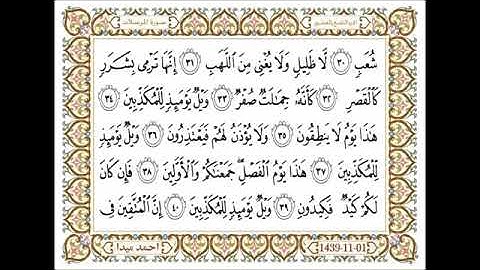 سورة المرسلات
شُعَبٍ ٣٠ لَّا ظَلِيلٍ وَلَا يُغْنِى مِنَ ٱللَّهَبِ ٣١ إِنَّهَا تَرْمِى بِشَرَرٍ
كَٱلْقَصْرِ ٣٢ كَأَنَّهُۥ جِمَٰلَتٌ صُفْرٌ ٣٣ وَيْلٌ يَوْمَئِذٍ لِّلْمُكَذِّبِينَ ٣٤
هَٰذَا يَوْمُ لَا يَنطِقُونَ ٣٥ وَلَا يُؤْذَنُ لَهُمْ فَيَعْتَذِرُونَ ٣٦ وَيْلٌ يَوْمَئِذٍ
لِّلْمُكَذِّبِينَ ٣٧ هَٰذَا يَوْمُ ٱلْفَصْلِ ۖ جَمَعْنَٰكُمْ وَٱلْأَوَّلِينَ ٣٨ فَإِن كَانَ
لَكُمْ كَيْدٌ فَكِيدُونِ ٣٩ وَيْلٌ يَوْمَئِذٍ لِّلْمُكَذِّبِينَ ٤٠ إِنَّ ٱلْمُتَّقِينَ فِى
1439-11-01 احمد ميدا